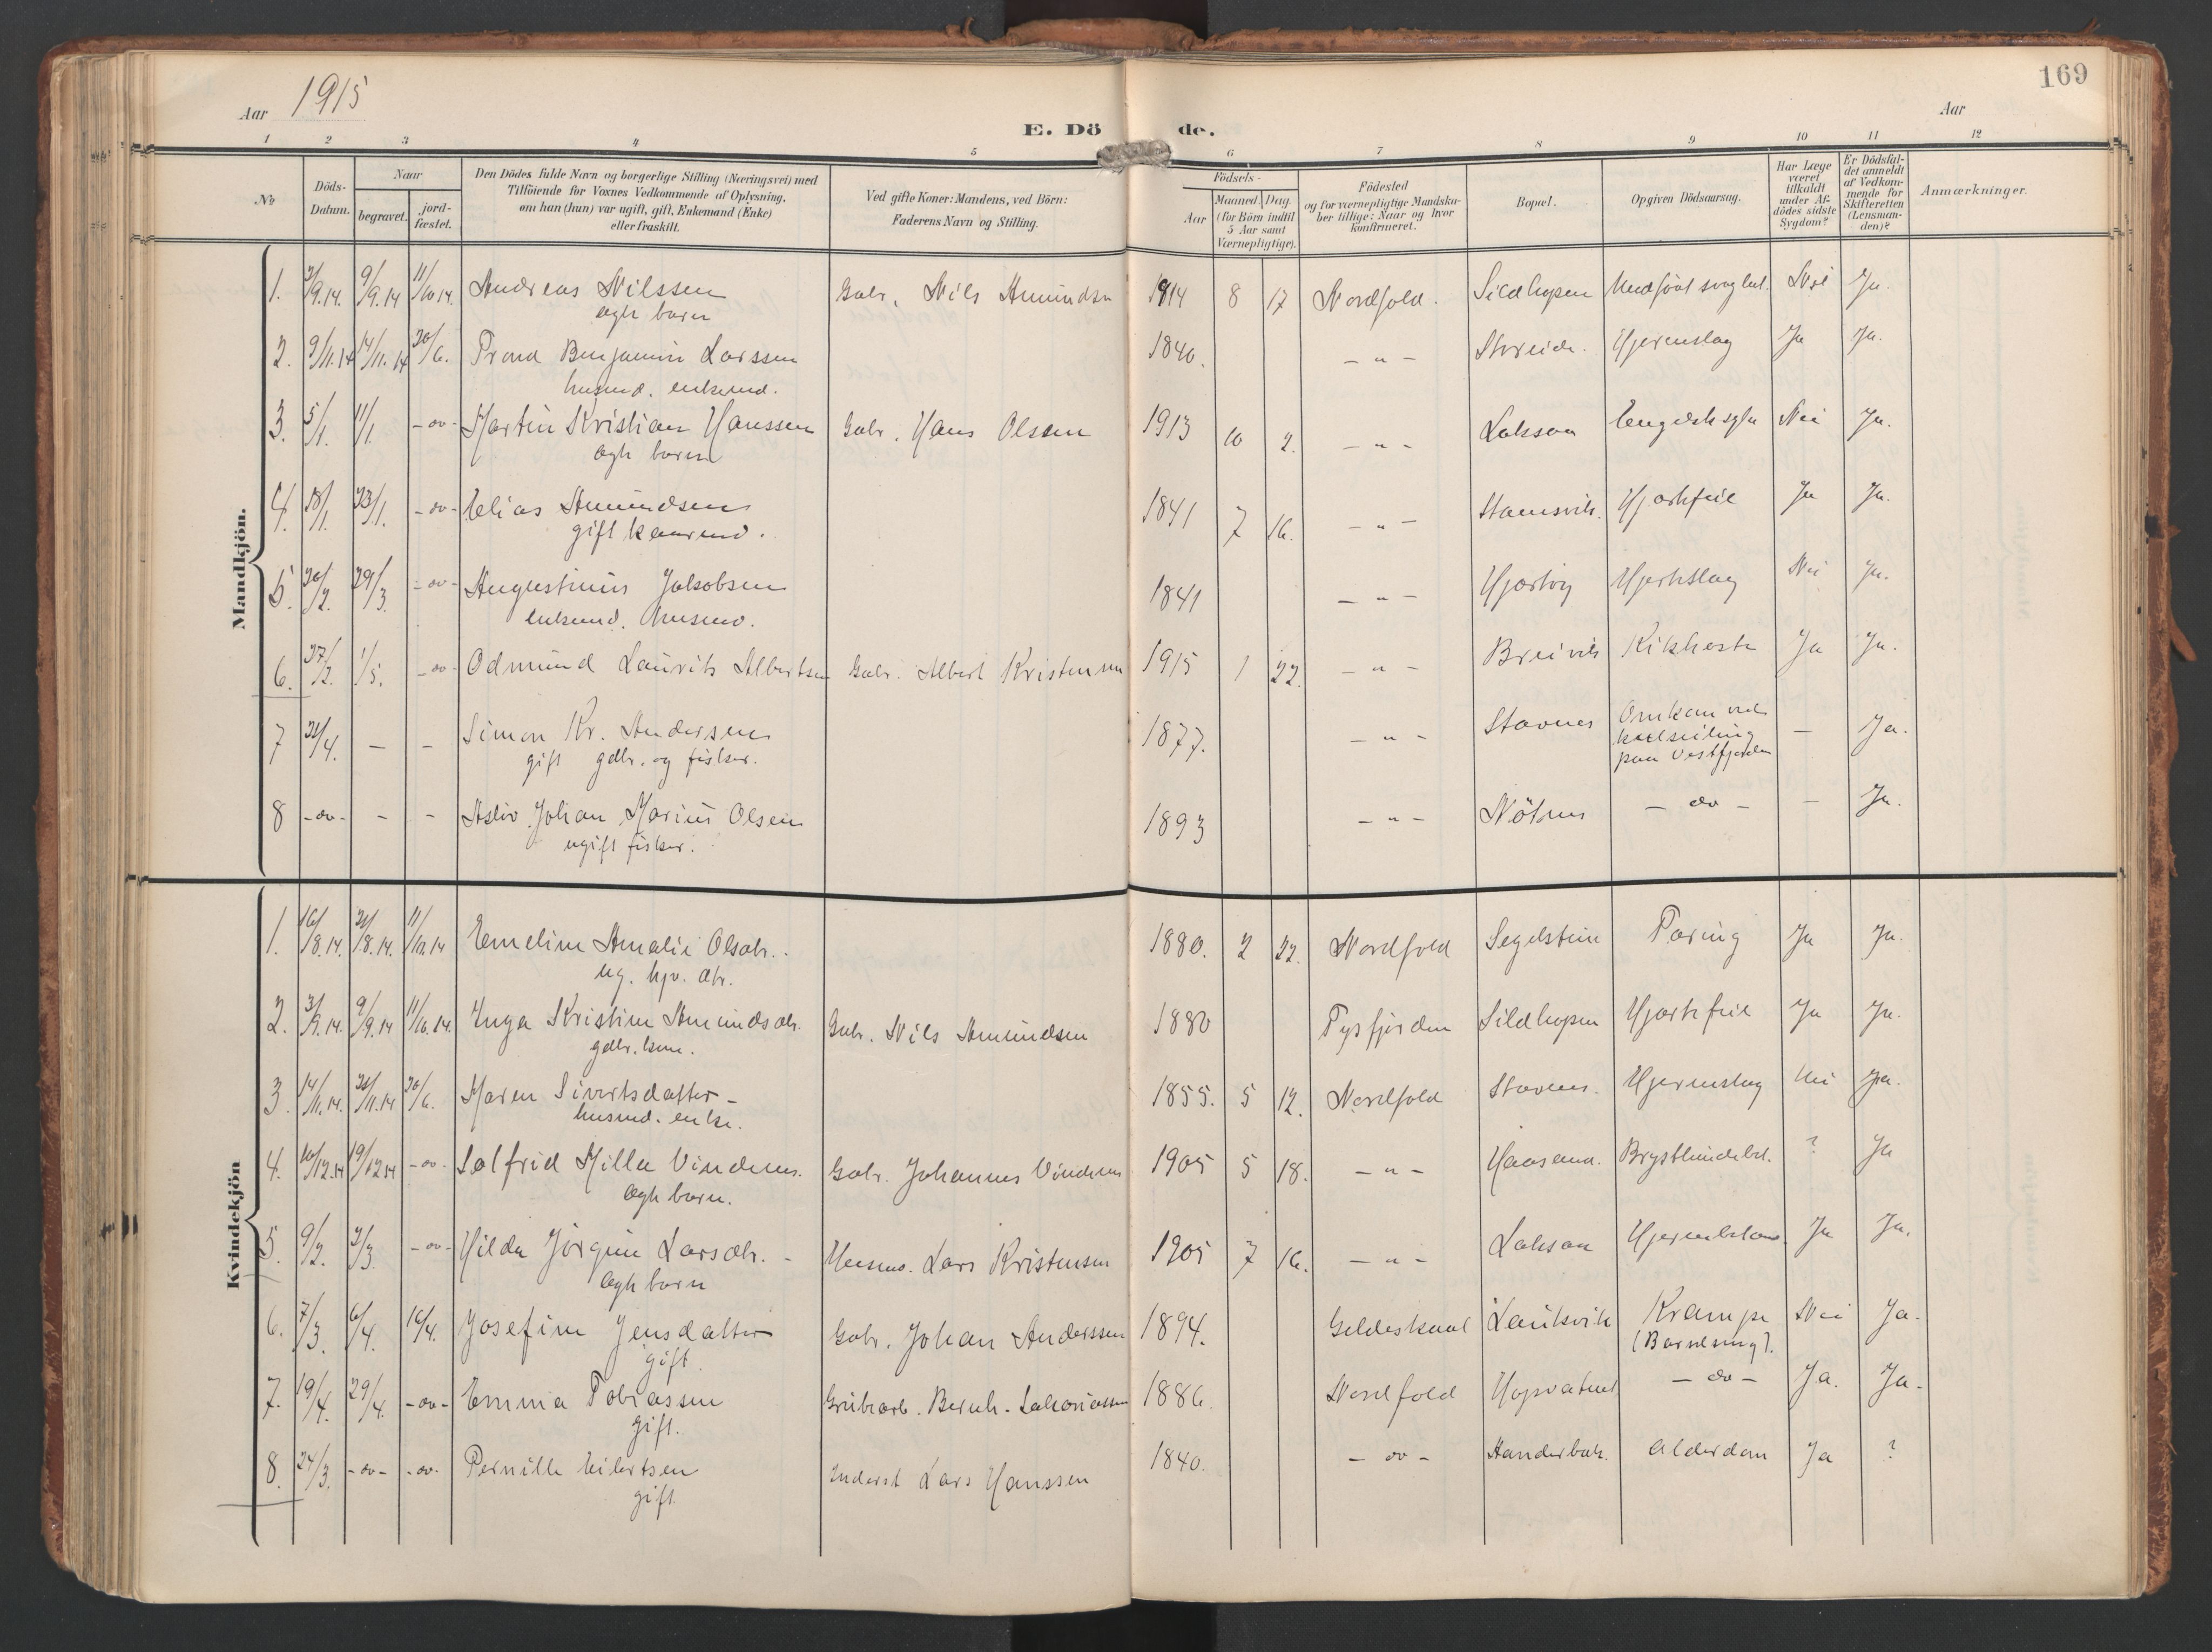 169
Aar 1915
Aar
E. Döde.
1 2 3 4 5 6 7 8 9 10 11 12
No
Döds-Datum.
Naar
begravet.
jord-fæstet.
Den Dödes fulde Navn og borgerlige Stilling (Næringsvei) med
Tilföiende for Voxnes Vedkommende af Oplysning,
om han (hun) var ugift, gift, Enkemand (Enke)
eller fraskilt.
Ved gifte Koner: Mandens, ved Börn:
Faderens Navn og Stilling.
Födsels-
Aar
Maaned. Dag.
(for Börn indtil
5 Aar samt
Værnepligtige).
Födested
og for værnepligtige Mandska-
ber tillige: Naar og hvor
konfirmeret.
Bopæl.
Opgiven Dödsaarsag.
Har Læge
været
tilkaldt
under Af-
dödes sidste
Sygdom?
Er Dödsfal-
det anmeldt
af Vedkom-
mende for
Skifteretten
(Lensman-
den)?
Anmærkninger.
Mandkjön.
1. 3/9.14. 9/9.14 11/10 14. Andreas Nilssen Gabr. Nils Amundsn 1914 8 17 Nordfold. Sildhopen Medfödt svaghet. Nei Ja.
ægte barn
2. 9/11.14 14/11.14 20/6. Trond Benjamin Larssen 1840. - " - Storeide. Hjerneslag Ja Ja.
husmd. enkemd.
3. 5/1. 11/1. -do- Martin Kristian Hanssen Gabr. Hans Olssen 1913 10 2. - " - Laksaa Engelsksyke Nei Ja.
ægte barn
4. 18/1. 23/1. -do- Elias Amundsen 1841 7 16. - " - Stamsvik. Hjertefeil Ja Ja.
gift kaarmd.
5. 20/2. 29/3. -do- Augustinus Jakobsen 1841 - " - Hjartøy Hjerteslag Nei Ja.
enkemd. husmd.
6. 27/2. 1/5. -do- Odmund Laurits Albertsen Gabr. Albert Kristensen 1915 1 22. - " - Breivik Kikhoste Ja Ja.
7 21/4. - - Simon Kr. Andersen 1877. - " - Stavnes Omkom ved
kuldseiling
paa Vestfjorden - Ja.
gift gdbr. og fisker.
8 -do- - - Aslov Johan Marius Olsen 1893 - " - Nötnes - do - - Ja.
ugift fisker.
Kvindekjön
1. 16/8.14. 21/8.14. 11/10.14 Emeline Amalie Olsdtr. 1880. 2 22. Nordfold Segelstein Tæring Ja Ja.
ug. hjv. dtr.
2. 3/9.14. 9/9.14 11/10.14. Inga Kristine Amundsdtr. Gabr. Nils Amundsen 1880 Tysfjorden Sildhopen Hjertefeil Ja Ja.
gdbr. kone.
3. 14/11.14. 21/11.14 20/6. Maren Sivertsdatter - 1855. 5 12. Nordfold Stavnes. Hjerneslag Nei Ja.
husmd. enke.
4. 10/12.14 19/12 14 -do- Solfrid Milla Vindenes. Gabr. Johannes Vindenes 1905 5 18. - " - Haasand. Brystbindebet. ? Ja
ægte barn.
5. 9/2. 2/3. -do- Hilda Jörgine Larsdtr. - Husmd. Lars Kristensen 1905 7 16. - " - Laksaa Ja Ja.
ægte barn
6. 7/3. 6/4. 16/4. Josefine Jensdatter Gabr. Johan Anderssen 1894. Gildeskaal Lautsvik Krampe Nei Ja.
gift. (Barneseng).
7. 19/4. 29/4. -do- Emma Tobiassen Grubearb. Bernh. Sakariassen 1886. Nordfold Hopvatnet - do - Ja. Ja.
gift.
8. 24/3. -do- -do- Pernille Eilertsen Inderst Lars Hanssen 1840. - do - Alderdom Ja ?
gift.